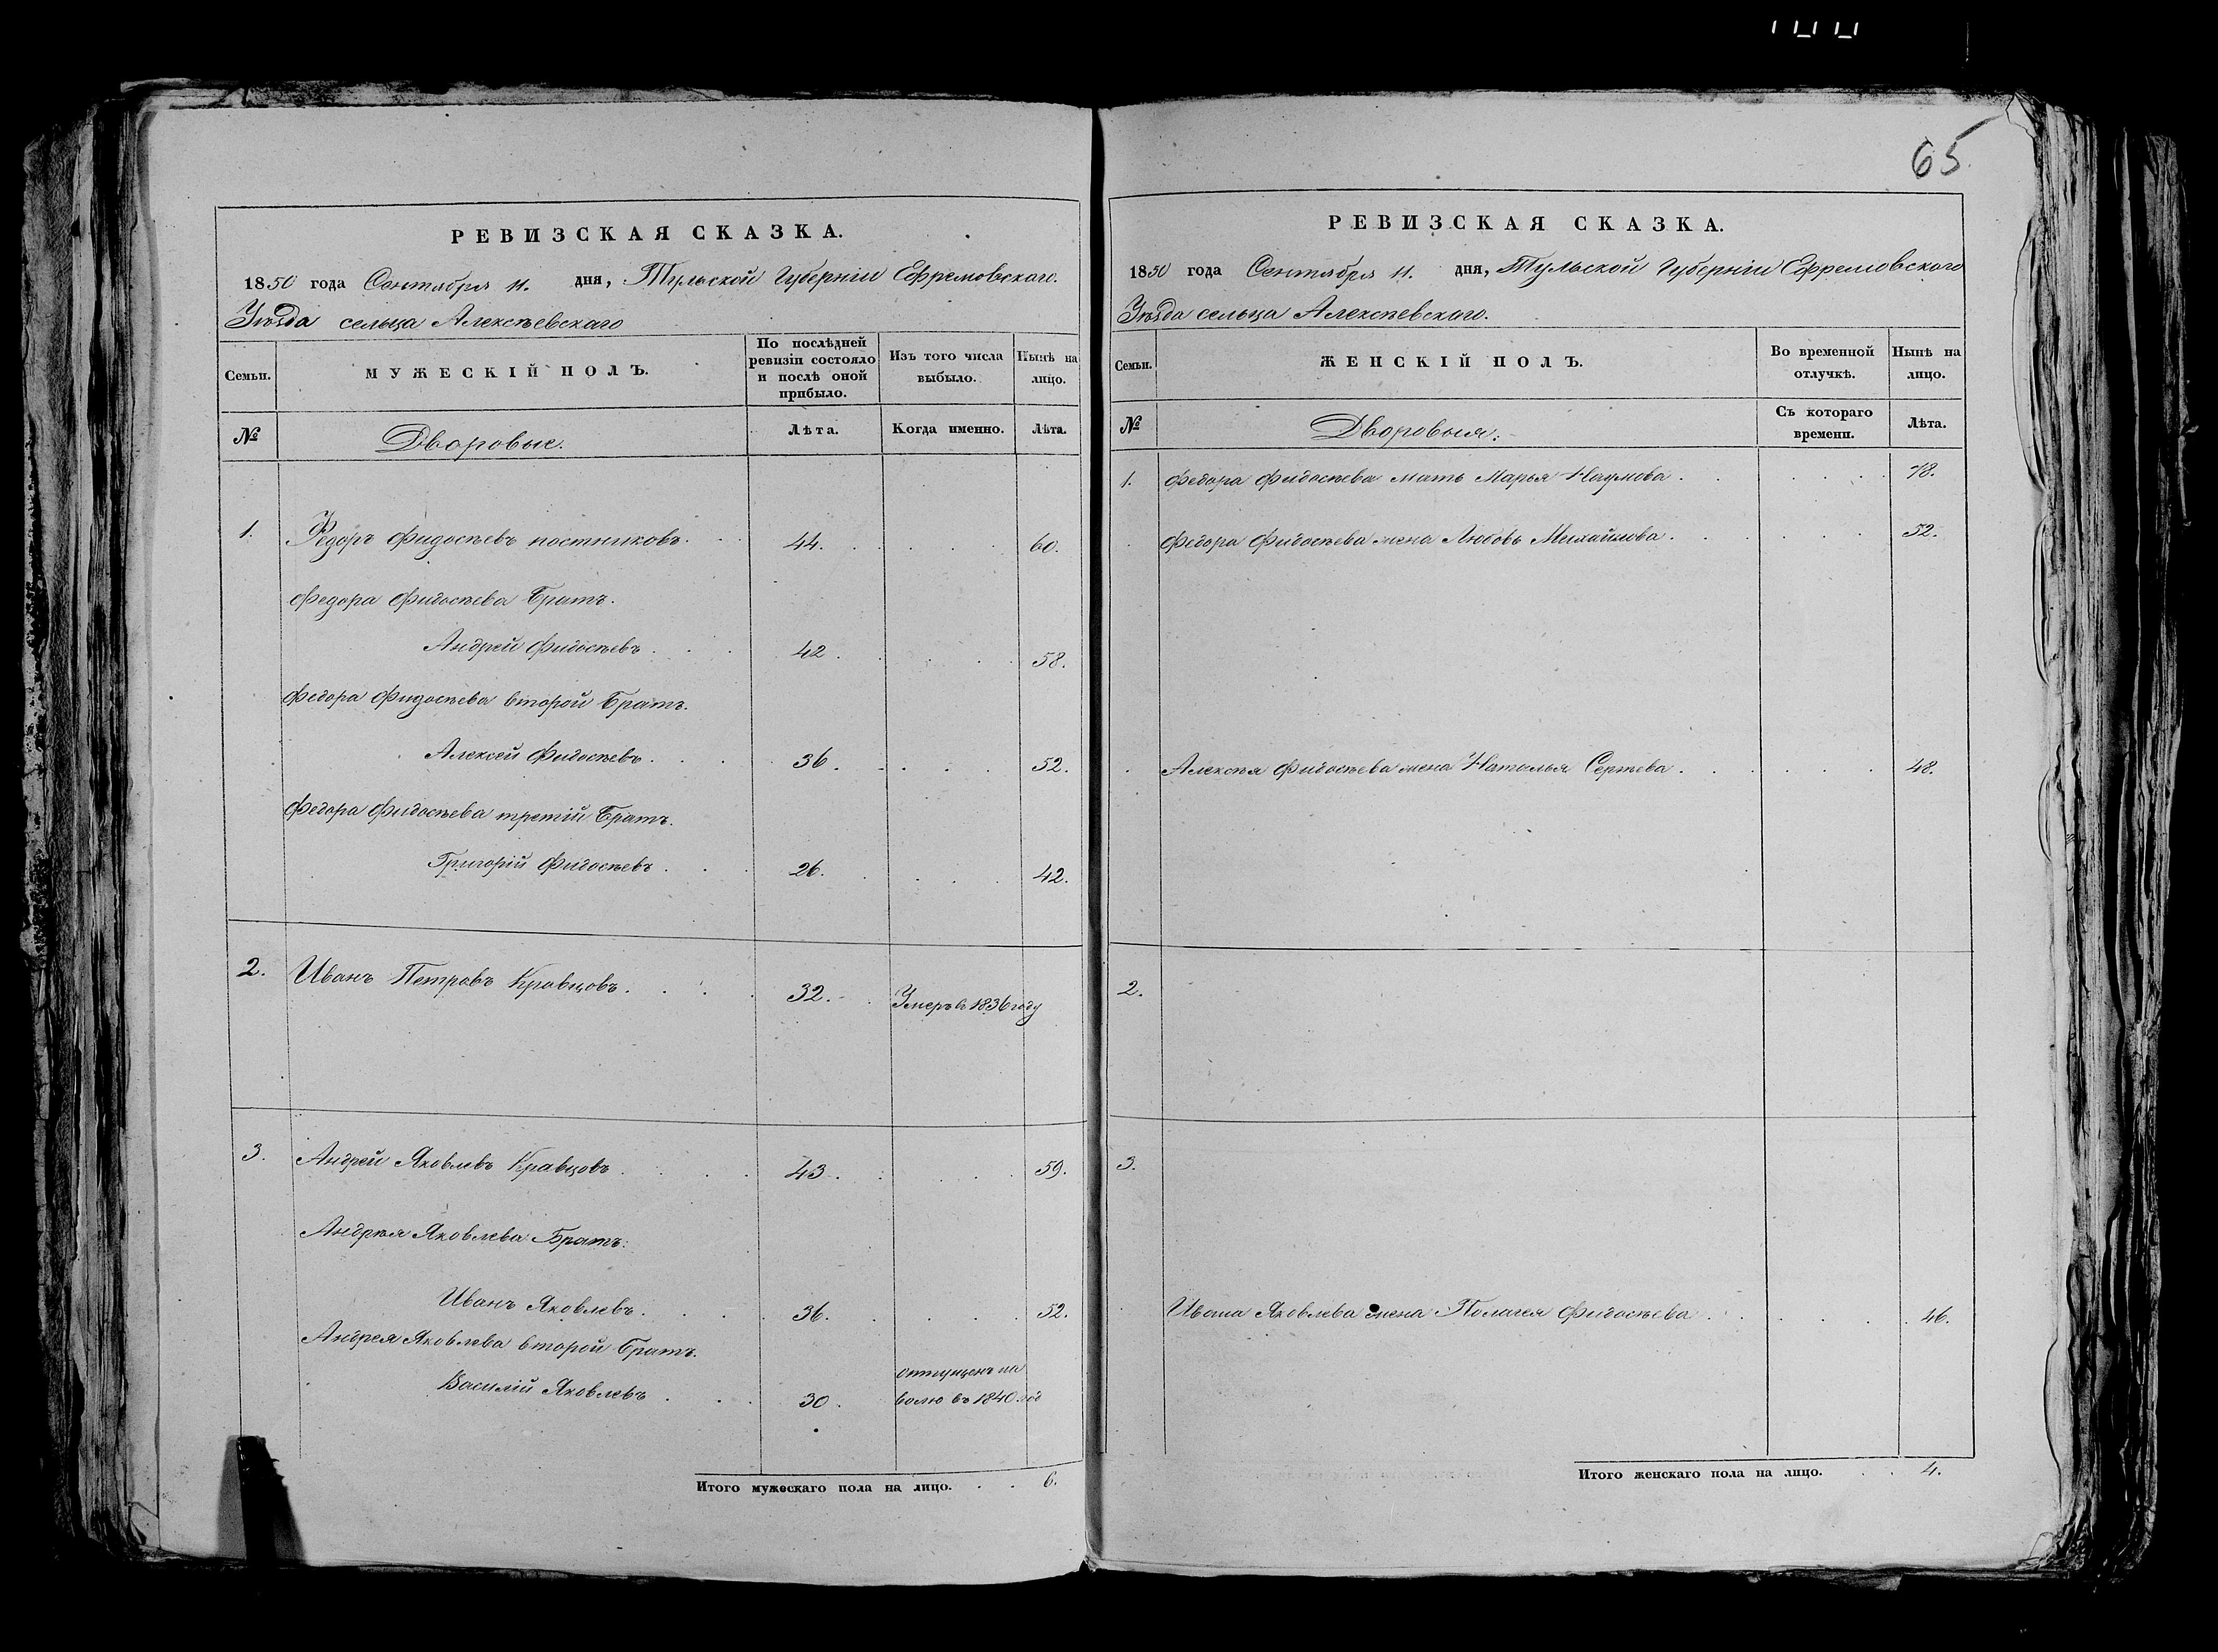 65
РЕВИЗСКАЯ СКАЗКА.
1850 года Сентября 11. дня, Тульской Губерніи Ефремовскаго.
Уѣзда сельца Алексѣевскаго
Семьи.
МУЖЕСКІЙ ПОЛЪ.
По послѣдней ревизіи состояло и послѣ оной прибыло.
Изъ того числа выбыло.
Нынѣ на лицо.
№
Дворовые.
Лѣта.
Когда именно.
Лѣта.
1. Федоръ Фидосѣевъ постниковъ. 44. 60.
Федора Фидосѣева Братъ.
Андрей Фидосѣевъ. 42. 58.
Федора Фидосѣева второй Братъ.
Алексей Фидосѣевъ. 36. 52.
Федора Фидосѣева третій Братъ.
Григорій Фидосѣевъ. 26. 42.
2. Иванъ Петровъ Кравцовъ. 32. Умеръ въ 1836 году
3. Андрей Яковлевъ Кравцовъ. 43. 59.
Андрея Яковлева Братъ:
Иванъ Яковлевъ. 36. 52.
Андрея Яковлева второй Братъ.
Василій Яковлевъ. 30. отпущенъ на
волю въ 1840 год
Итого мужескаго пола на лицо. 6.
РЕВИЗСКАЯ СКАЗКА.
1850 года Сентября 11. дня, Тульской Губерніи Ефремовскаго
Уѣзда сельца Алексѣевскаго.
Семьи.
ЖЕНСКІЙ ПОЛЪ.
Во временной отлучкѣ.
Нынѣ на лицо.
№
Дворовыя.
Съ котораго времени.
Лѣта.
1. Федора Фидосѣева мать Марья Наумова. 78.
Федора Фидосѣева жена Любовь Михайлова. 52.
Алексѣя Фидосѣева жена Наталья Сергѣева. 48.
2.
3.
Ивана Яковлева жена Полагея Фидосѣева. 46.
Итого женскаго пола на лицо. 4.